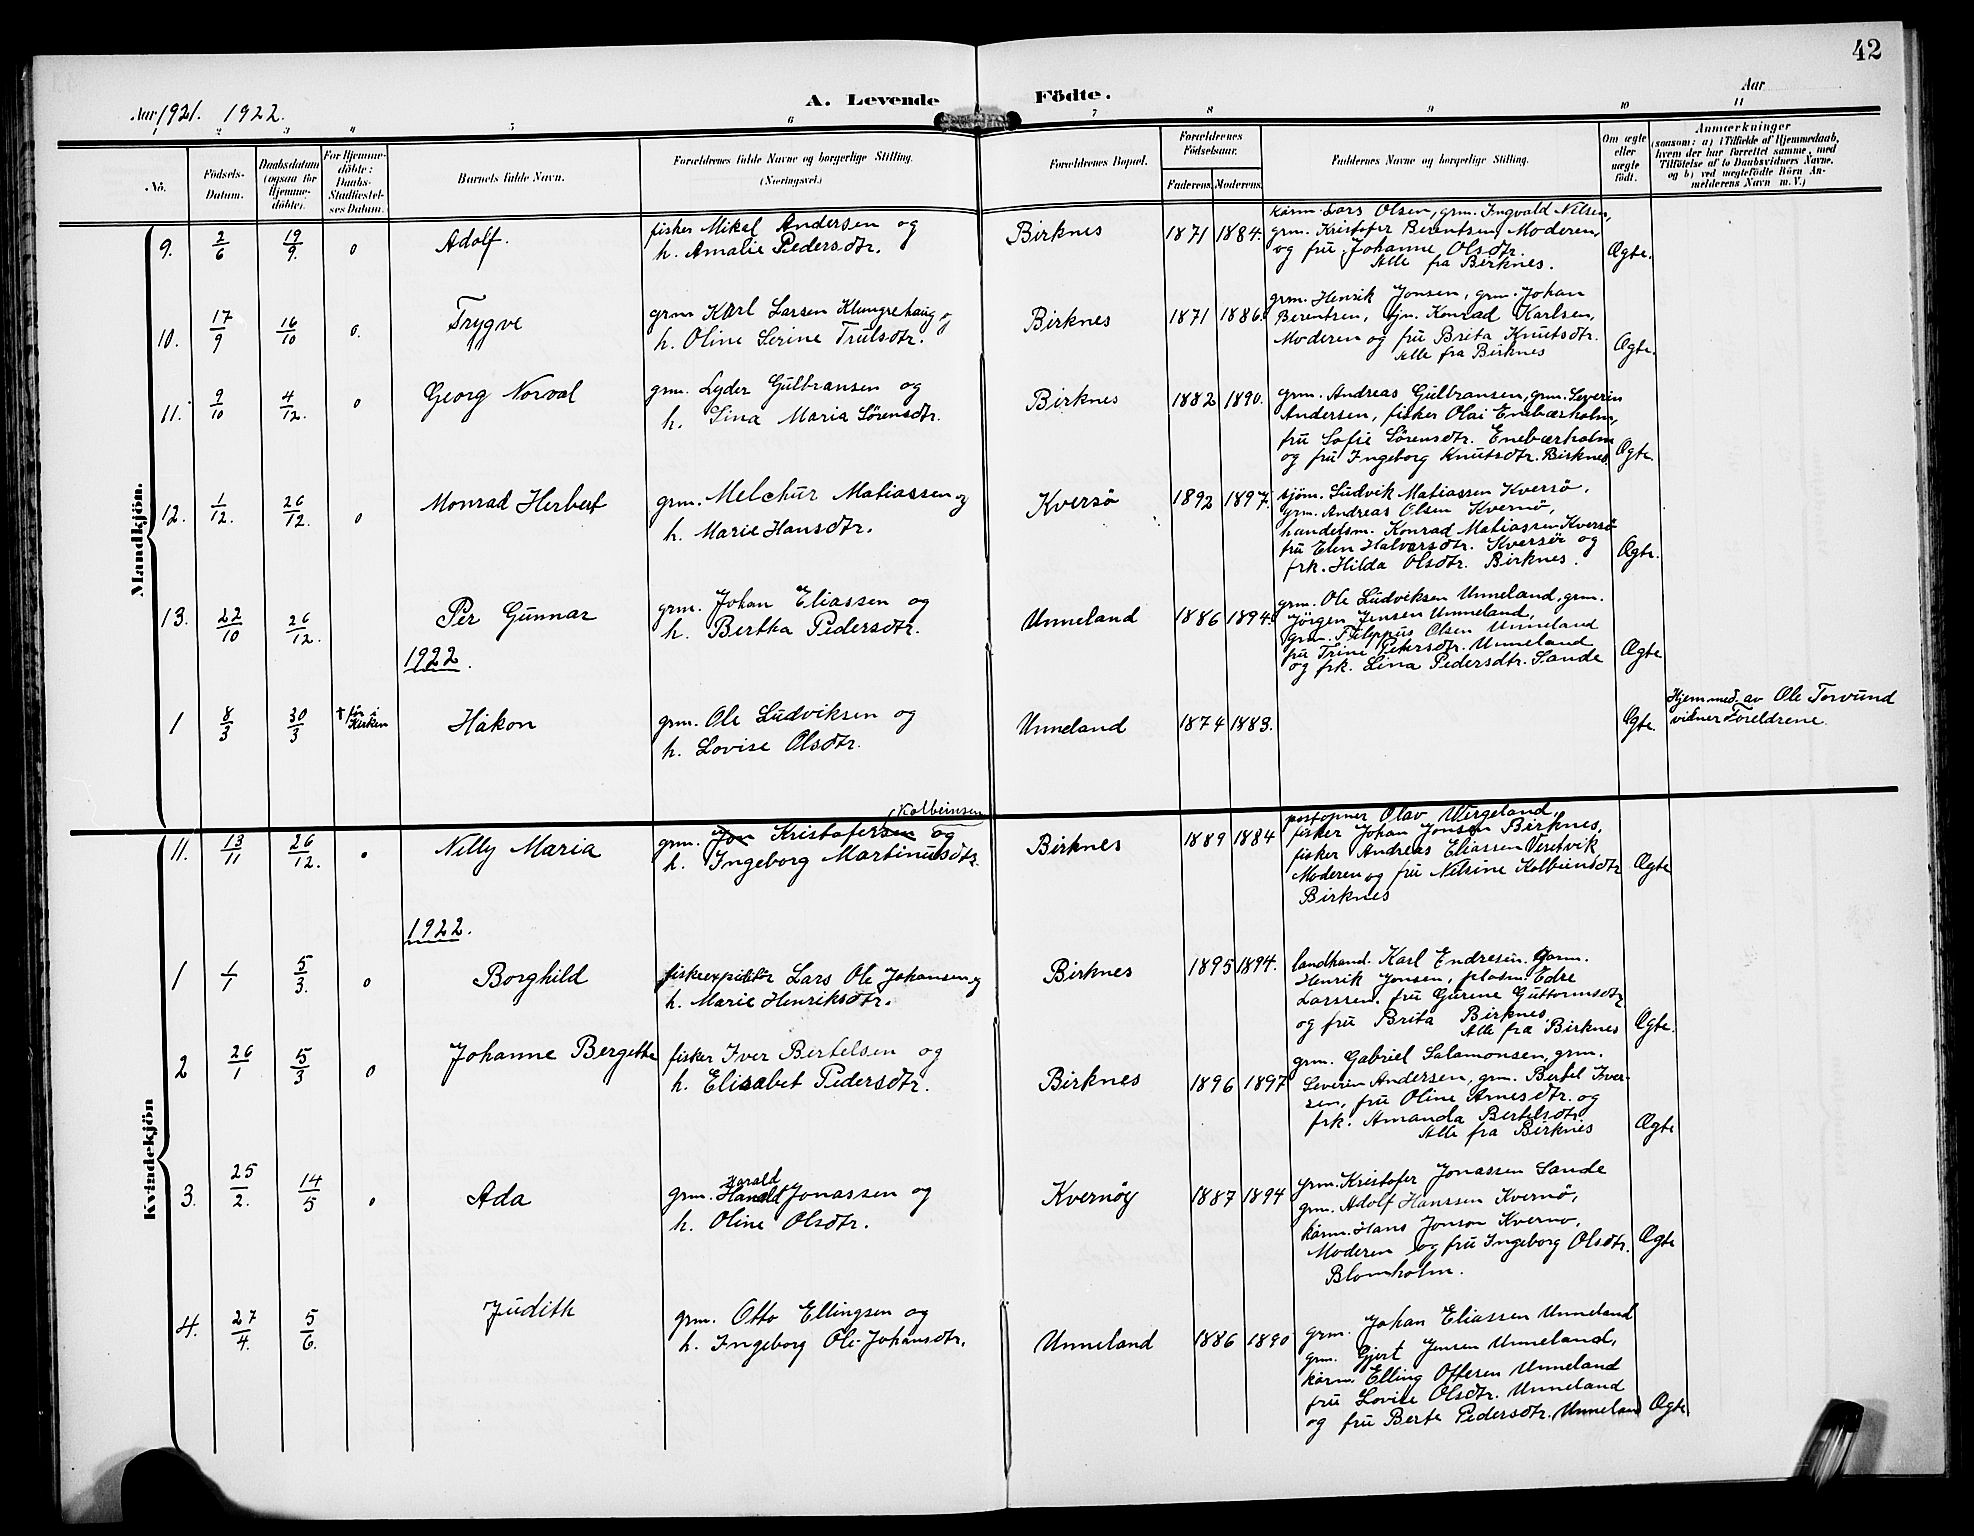 42
Aar 1921. 1922.
A. Levende Födte.
Aar
1 2 3 4 5 6 7 8 9 10 11
No.
Födsels-
Datum.
Daabsdatum
(ogsaa for
Hjemme-
döbte).
For Hjemme-
döbte:
Daabs-
Stadfæstel-
ses Datum.
Barnets fulde Navn.
Forældrenes fulde Navne og borgerlige Stilling.
(Næringsvei.)
Forældrenes Bopæl.
Forældrenes
Födselsaar.
Faderens. Moderens.
Faddernes Navne og borgerlige Stilling.
Om ægte
eller
uægte
födt.
Anmærkninger
(saasom: a) i Tilfælde af Hjemmedaab,
hvem der har forrettet samme, med
Tilföielse af to Daabsvidners Navne.
og b) ved uægtefödte Börn An-
melderens Navn m. V.)
Mandkjön.
9. 2/6 19/9. 0 Adolf.
fisker Mikal Andersen og
h. Amalie Pedersdtr.
Birknes 1871 1884.
kårm. Lars Olsen, grm. Ingvald Nilsen,
grm. Kristofer Berentsen, Moderen,
og fru Johanne Olsdtr.
Alle fra Birknes.
Ægte.
10. 17/9 16/10 0. Trygve
grm Karl Larsen Klungrehaug og
h. Oline Serine Trulsdtr.
Birknes 1871 1886.
grm. Henrik Jonsen, grm. Johan
Berentsen, sjm. Konrad Karlsen,
Moderen og fru Brita Knutsdtr.
Alle fra Birknes
Ægte.
11. 9/10 4/12. 0 Georg Norval
grm. Lyder Gulbransen og
h. Lina Maria Sörensdtr.
Birknes 1882 1890.
grm. Andreas Gulbransen, grm. Severin
Andersen, fisker Olai Enebærholm,
fru Sofie Sörensdtr. Enebærholm
og fru Ingeborg Knutsdtr. Birknes.
Ægte.
12. 1/12. 26/12. 0 Monrad Herbert
grm. Melchur Matiassen og
h. Marie Hansdtr.
Kversö 1892 1897.
sjöm. Ludvik Matiassen Kversö,
grm. Andreas Olsen Kvernö,
handelsm. Konrad Matiassen Kversö
fru Elen Halvorsdtr. Kversöi og
frk. Hilda Olsdtr. Birknes.
Ægte.
13. 22/10 26/12. Per Gunnar
grm. Johan Eliassen og
h. Bertha Pedersdtr.
Unneland 1886 1894.
grm. Ole Ludviksen Unneland, grm.
Jörgen Jensen Unneland,
grm. Filippus Olsen Unneland
fru Trine Petersdtr. Unneland
og frk. Lina Pedersdtr. Sande
Ægte
1922.
1 8/3 30/3 † för i
Kirken
Håkon
grm. Ole Ludviksen og
h. Lovise Olsdtr.
Unneland 1874 1883.
Ægte.
Hjemmed. av Ole Torvund
vidner Foreldrene.
Kvindekjön
11. 13/11 26/12. 0 Nilly Maria
Kolbeinsen
grm. Jon Kristofersen og
h. Ingeborg Martinusdtr.
Birknes 1889 1884
postopner Olav Wergeland,
fisker Johan Jonsen Birknes,
fisker Andreas Eliassen Veretvik
Moderen og fru Nilsine Kolbeinsdtr
Birknes
Ægte
1922.
1 1/1 5/3. 0 Borghild
fiskeexpeditör Lars Ole Johansen og
h. Marie Henriksdtr.
Birknes 1895 1894.
landhand. Karl Endresen. Garm.
Henrik Jonsen, pladsm. Edre
Larssen. fru Gurene Guttormsdtr
og fru Brita Birknes.
Alle fra Birknes
Ægte.
2 26/1 5/3 0 Johanne Bergette
fisker Iver Bertelsen og
h. Elisabet Pedersdtr.
Birknes 1896 1897
grm. Gabriel Salamonsen, grm.
Severin Andersen, grm. Bertel Iver-
sen, fru Oline Arnesdtr. og
frk. Amanda Bertelsdtr.
Alle fra Birknes
Ægte
3. 25/2. 14/5 0 Ada
Harald
grm. Harald Jonassen og
h. Oline Olsdtr.
Kvernöy 1887 1894
Grm. Kristofer Jonassen Sande
grm. Adolf Hanssen Kvernö,
kårm. Hans Jonson Kvernö,
Moderen og fru Ingeborg Olsdtr.
Blomholm.
Ægte
4. 27/4. 5/6. Judith
grm. Otto Ellingsen og
h. Ingeborg Oli Johansdtr.
Unneland 1886 1890
grm. Johan Eliassen Unneland
grm. Gjert Jensen Unneland,
kårm. Elling Ottesen Unneland
fru Lovise Olsdtr. Unneland
og fru Berte Pedersdtr. Unneland
Ægte